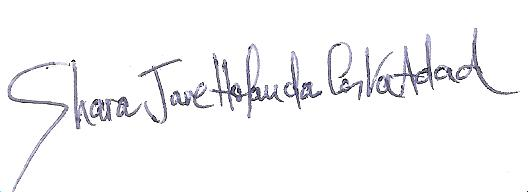 Shara Jane Holanda Costa Adad